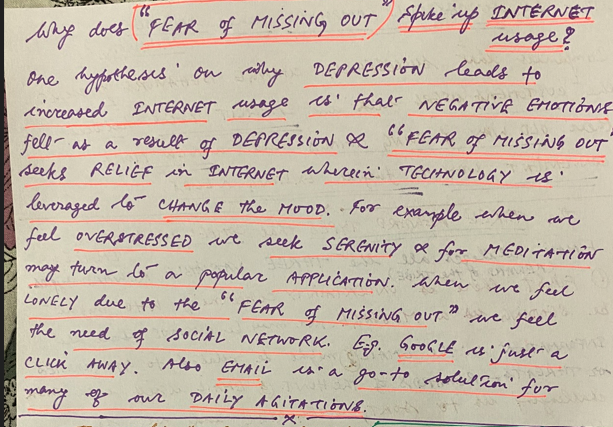 Why does "FEAR of MISSING OUT" spike up INTERNET
usage?
One hypothesis on why DEPRESSION leads to
increased INTERNET usage is that NEGATIVE EMOTIONS
felt as a result of DEPRESSION & "FEAR of MISSING OUT
seeks RELIEF in INTERNET wherein TECHNOLOGY is
leveraged to CHANGE the MOOD. For example when we
feel OVERSTRESSED we seek SERENITY & for MEDITATION
may turn to a popular APPLICATION. When we feel
LONELY due to the "FEAR of MISSING OUT" we feel
the need of SOCIAL NETWORK. Eg. GOOGLE is just a
CLICK AWAY. Also EMAIL is a go-to solution for
many of our DAILY AGITATIONS.